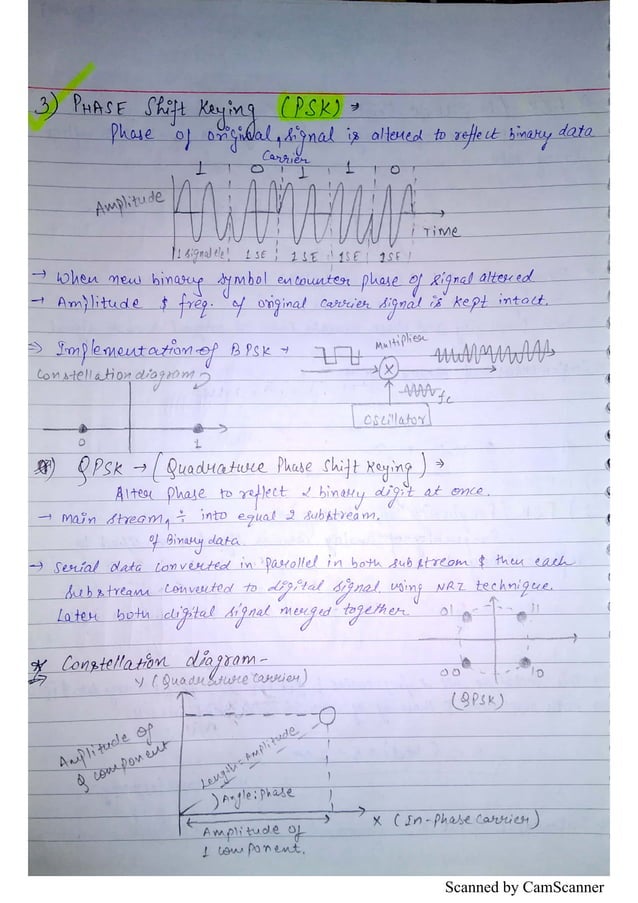 3) PHASE Shift Keying (PSK) →
Phase of original signal is altered to reflect binary data
Carrier
1 0 1 1 0
Amplitude
Time
1 signal ele 1 SE 1 SE 1 SE 1 SE
→ When new binary symbol encounter phase of signal altered
→ Amplitude & freq. of original carrier signal is kept intact.
⇒ Implementation of BPSK →
Multiplier
Constellation diagram
X
fc
Oscillator
0 1
QPSK → (Quadrature Phase Shift Keying) →
Alter phase to reflect 2 binary digit at once.
→ Main stream ÷ into equal 2 substream.
of Binary data.
→ Serial data converted in Parallel in both substream & then each
substream converted to digital signal using NRZ technique.
Later both digital signal merged together.
01 11
00 10
(QPSK)
* Constellation diagram -
Y (Quadrature carrier)
Amplitude of
Q component
Length = Amplitude
Angle: phase
X (In-Phase carrier)
Amplitude of
I component.
Scanned by CamScanner